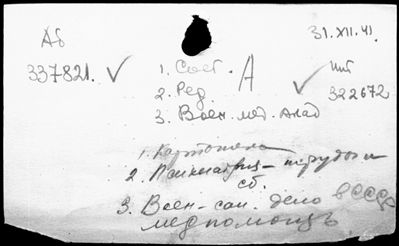 Аб
31.XII.41.
337821. ✓
1. Сост. А
2. Ред. ✓
инт
322672
3. Воен. мед. акад
1. Картотека
2. Психиатрия - труды и
сб.
3. Воен - сан. дело в СССР
медпомощь